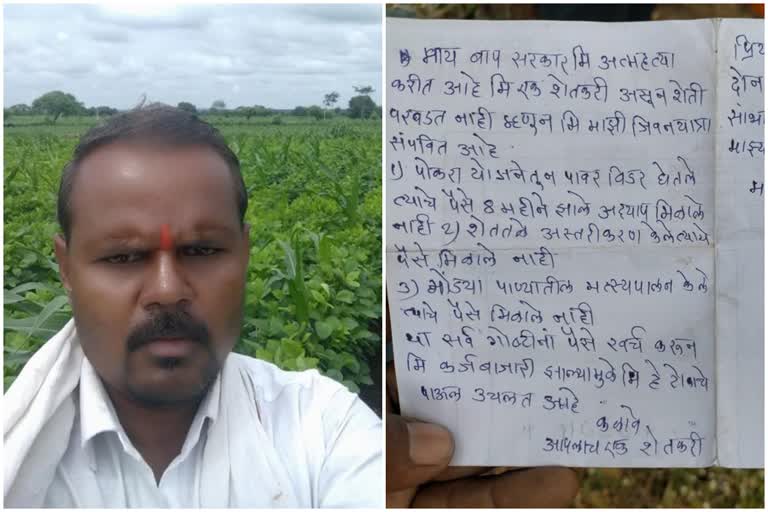 माय बाप सरकार मि आत्महत्या
करीत आहे मि एक शेतकरी असून शेती
परवडत नाही म्हणून मि माझी जिवनयात्रा
संपवित आहे
1) पोकरा योजनेतून पावर विडर घेतले
त्याचे पैसे 8 महीने झाले अद्याप मिळाले
नाही 2) शेततळे अस्तरीकरण केले त्याचे
पैसे मिळाले नाही
3) गोड्या पाण्यातील मत्स्यपालन केले
त्याचे पैसे मिळाले नाही
या सर्व गोष्टीनां पैसे खर्च करून
मि कर्जबाजारी झाल्यामुळे मि हे टोकाचे
पाऊल उचलत आहे
कळावे
आपलाच एक शेतकरी
प्रिय
दोन
माझ्य